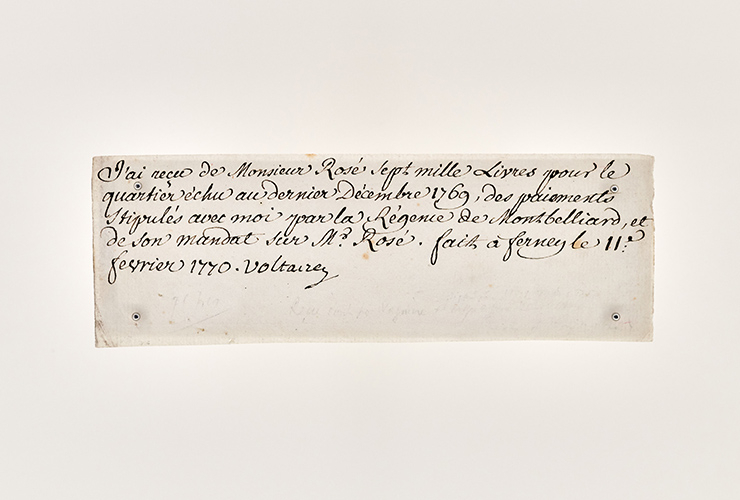 J'ai reçu de Monsieur Rosé sept mille Livres pour le
quartier échu au dernier Décembre 1769, des paiements
stipulés avec moi par la Régence de Montbelliard, et
de son mandat sur Mr. Rosé. fait à ferney le 11e.
fevrier 1770. Voltaire